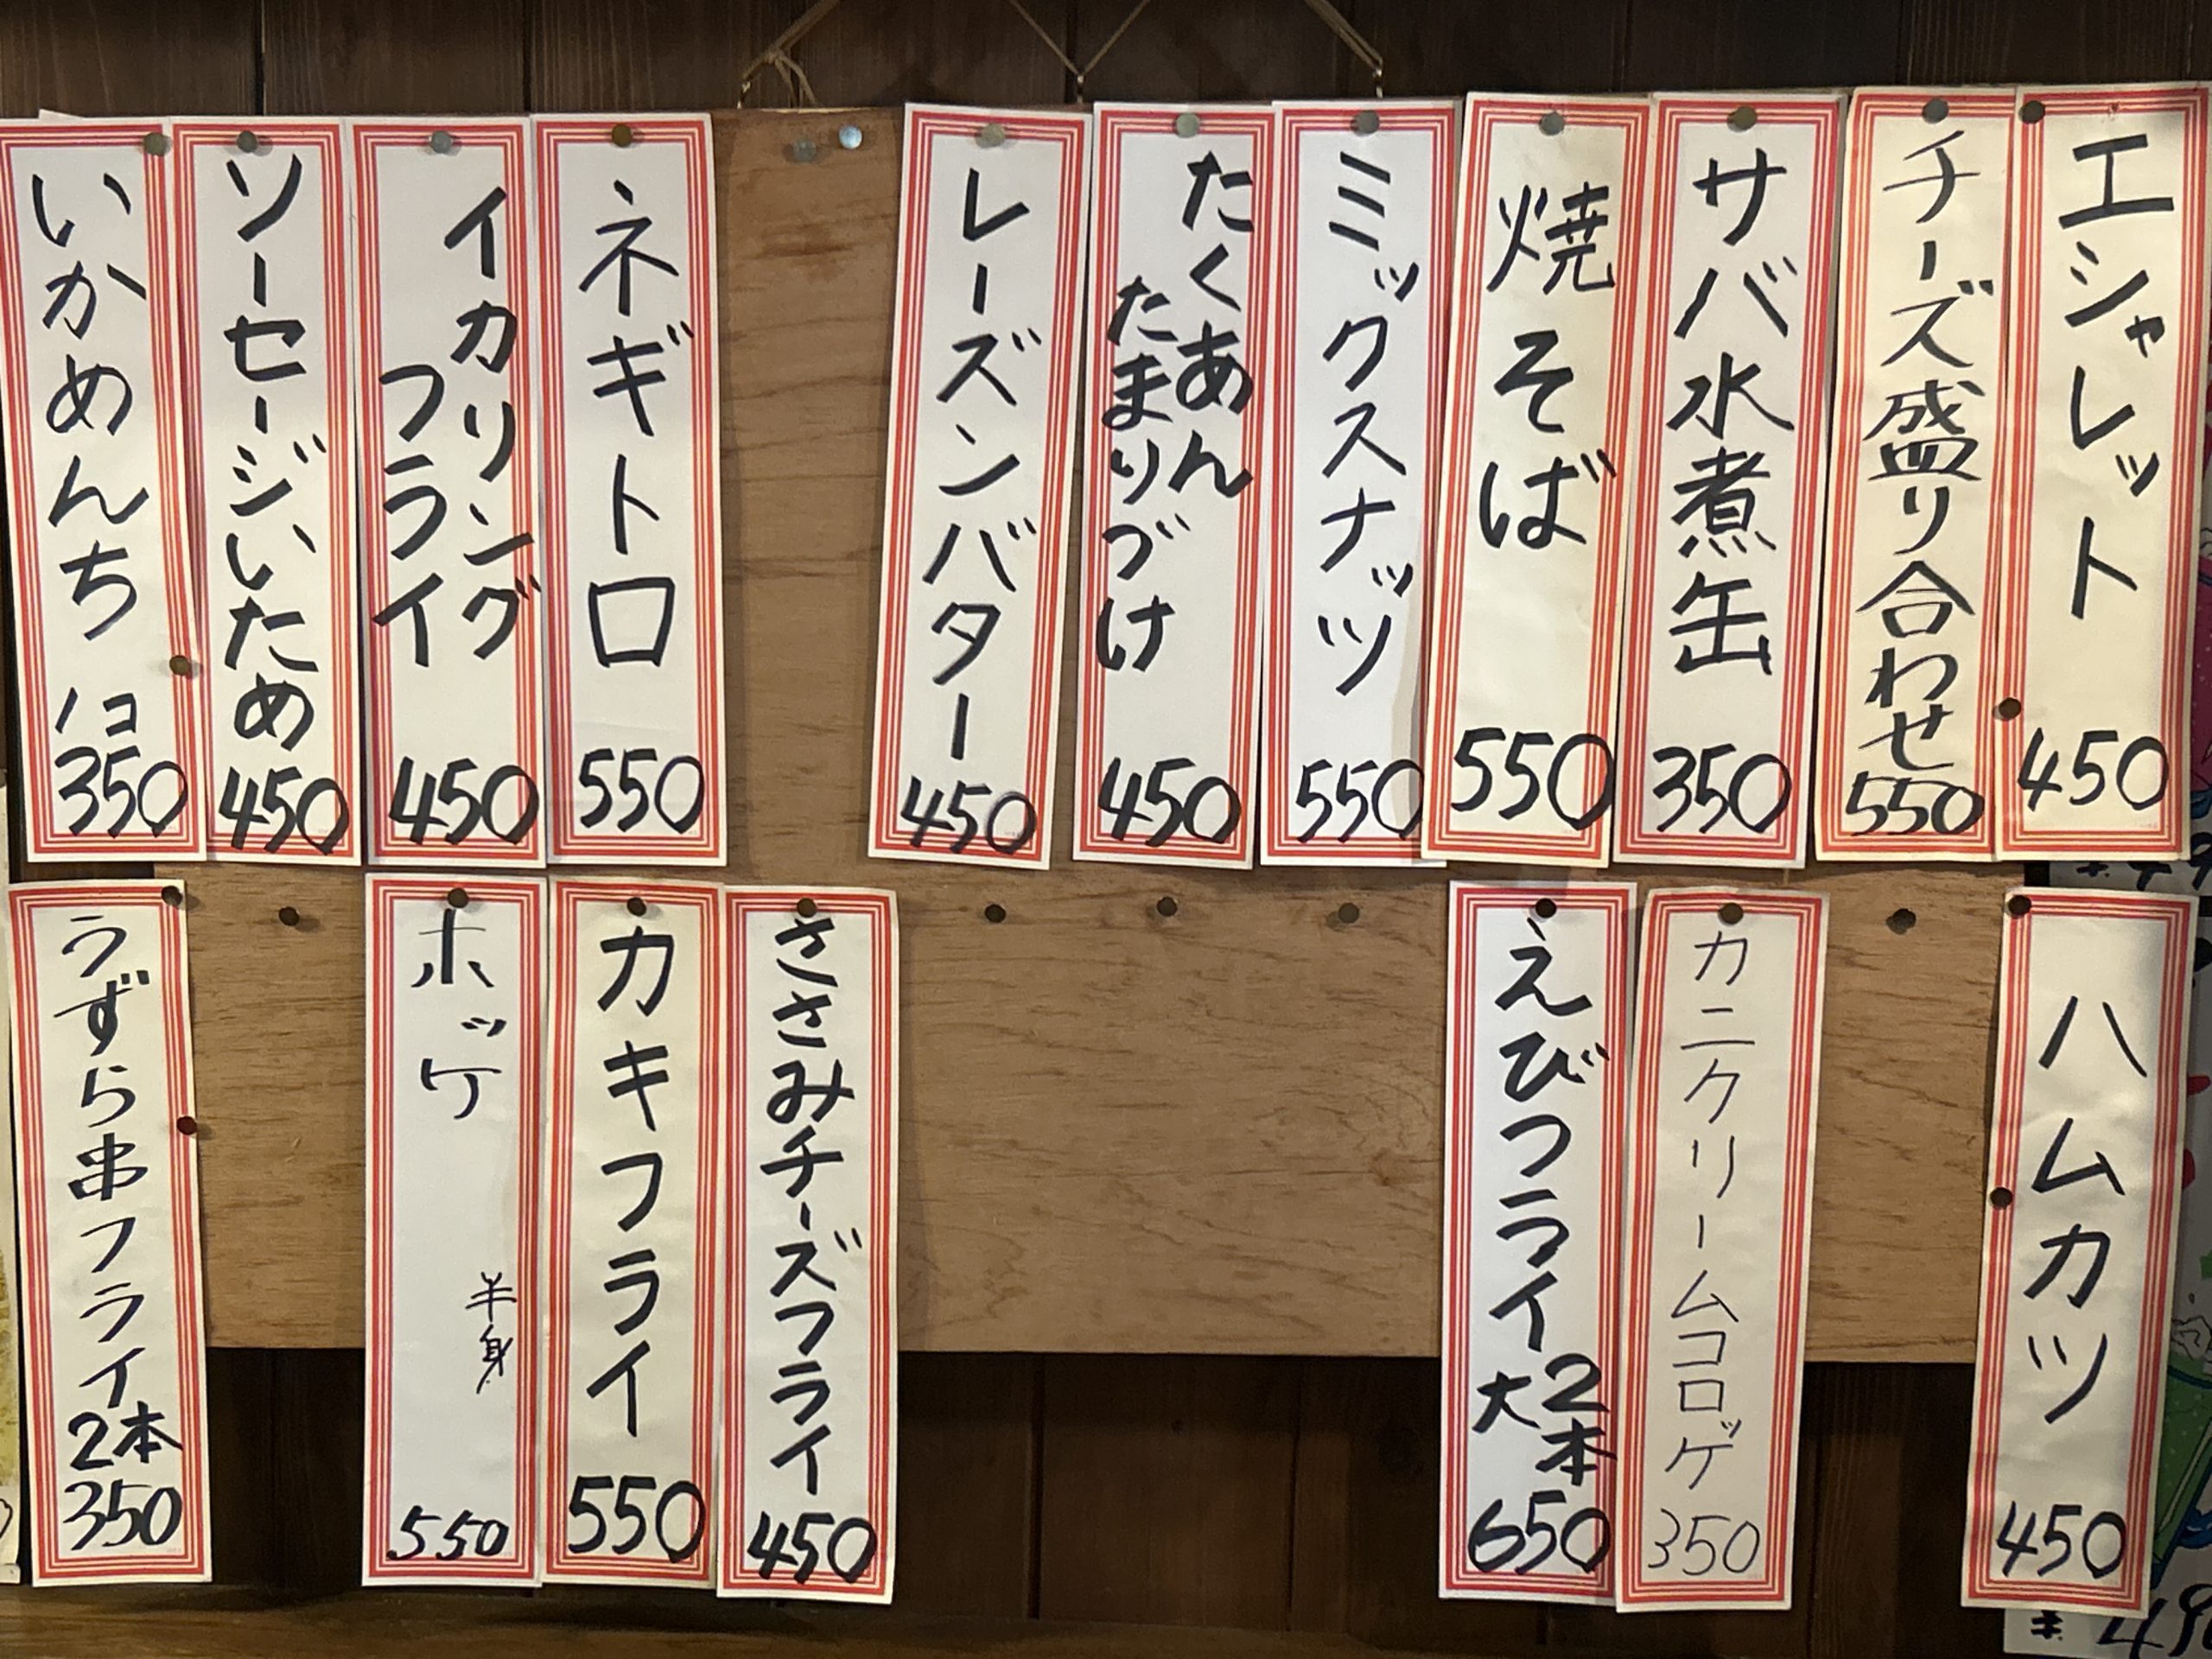 エシャレット
450
チーズ盛り合わせ
550
サバ水煮缶
350
焼そば
550
ミックスナッツ
550
たくあん
たまりづけ
450
レーズンバター
450
ネギトロ
550
イカリング
フライ
450
ソーセージいため
450
いかめんち
1コ
350
ハムカツ
450
カニクリームコロッケ
350
えびフライ
大2本
650
ささみチーズフライ
450
カキフライ
550
ホッケ
半身
550
うずら串フライ
2本
350